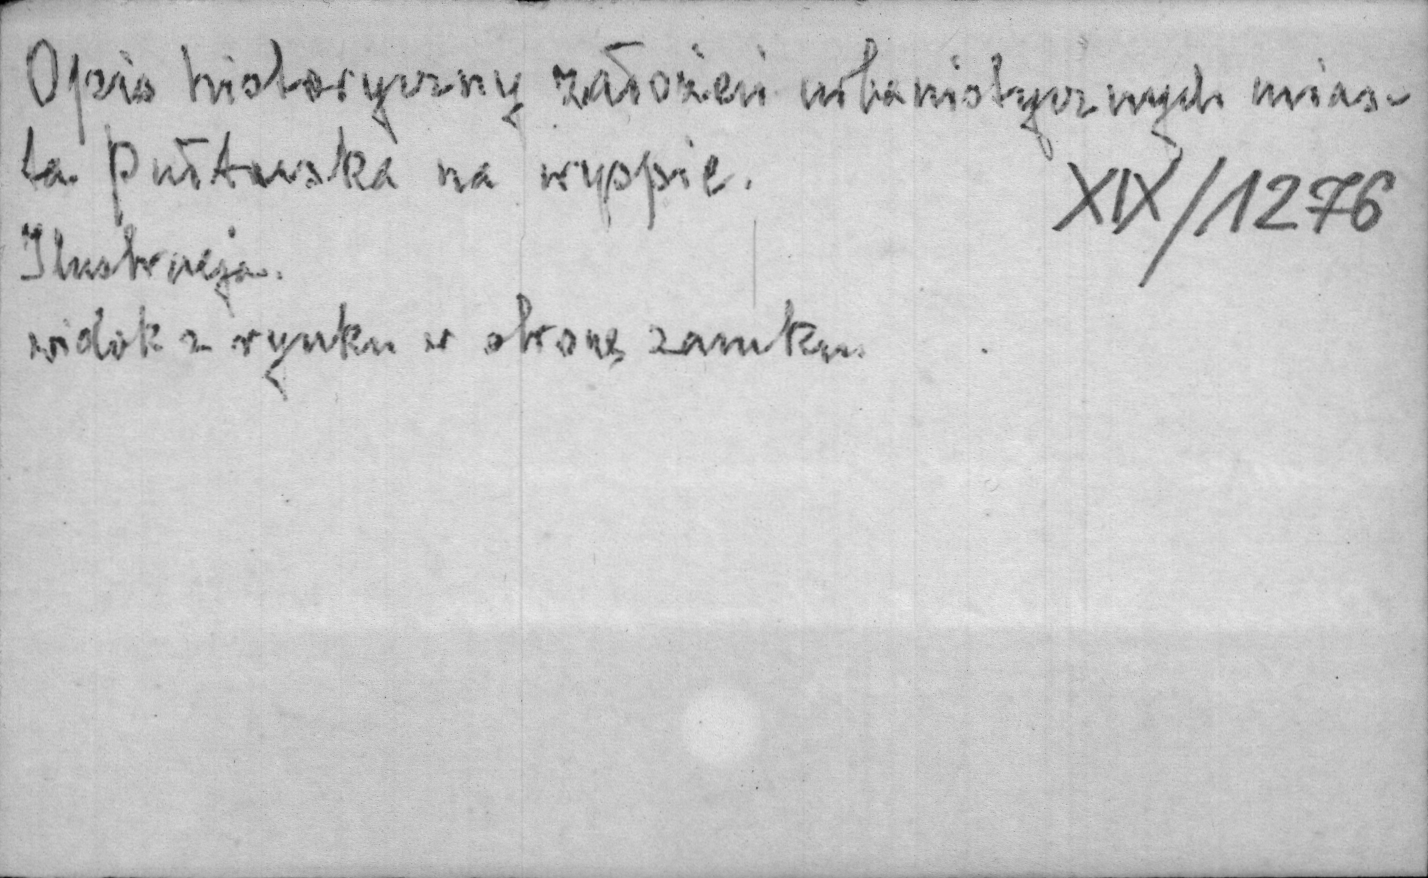 Opis historyczny założeń urbanistycznych mias-
ta Pułtuska na wyspie.
XIX/1276
Ilustracja.
widok z rynku w stronę zamku.